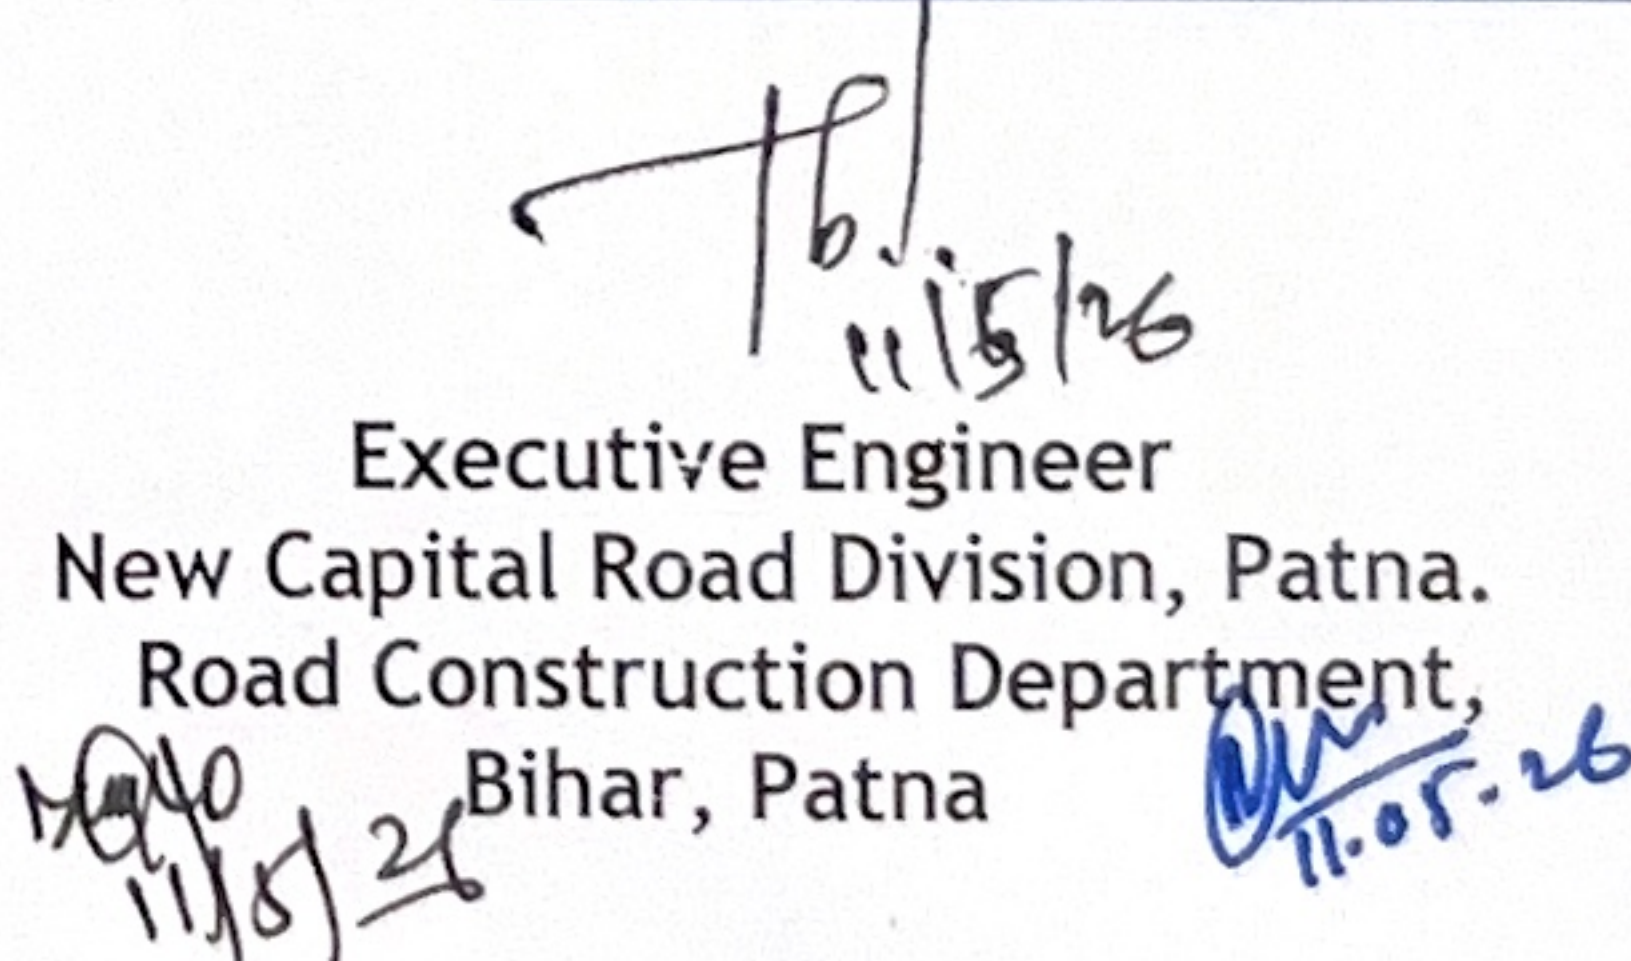 11/5/26
Executive Engineer
New Capital Road Division, Patna.
Road Construction Department,
Bihar, Patna
11/5/26
11.05.26